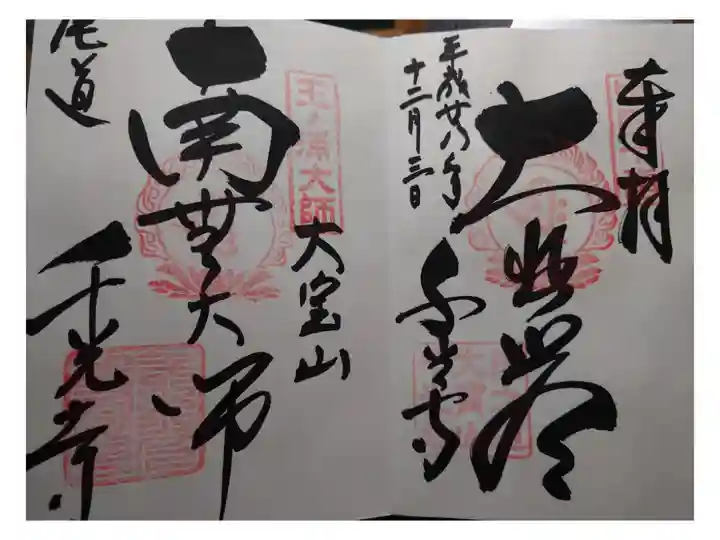 奉拝
大悲閣
千光寺
平成廿八年
十二月三日
大宝山
玉ノ浦大師
南無大師
尾道
千光寺